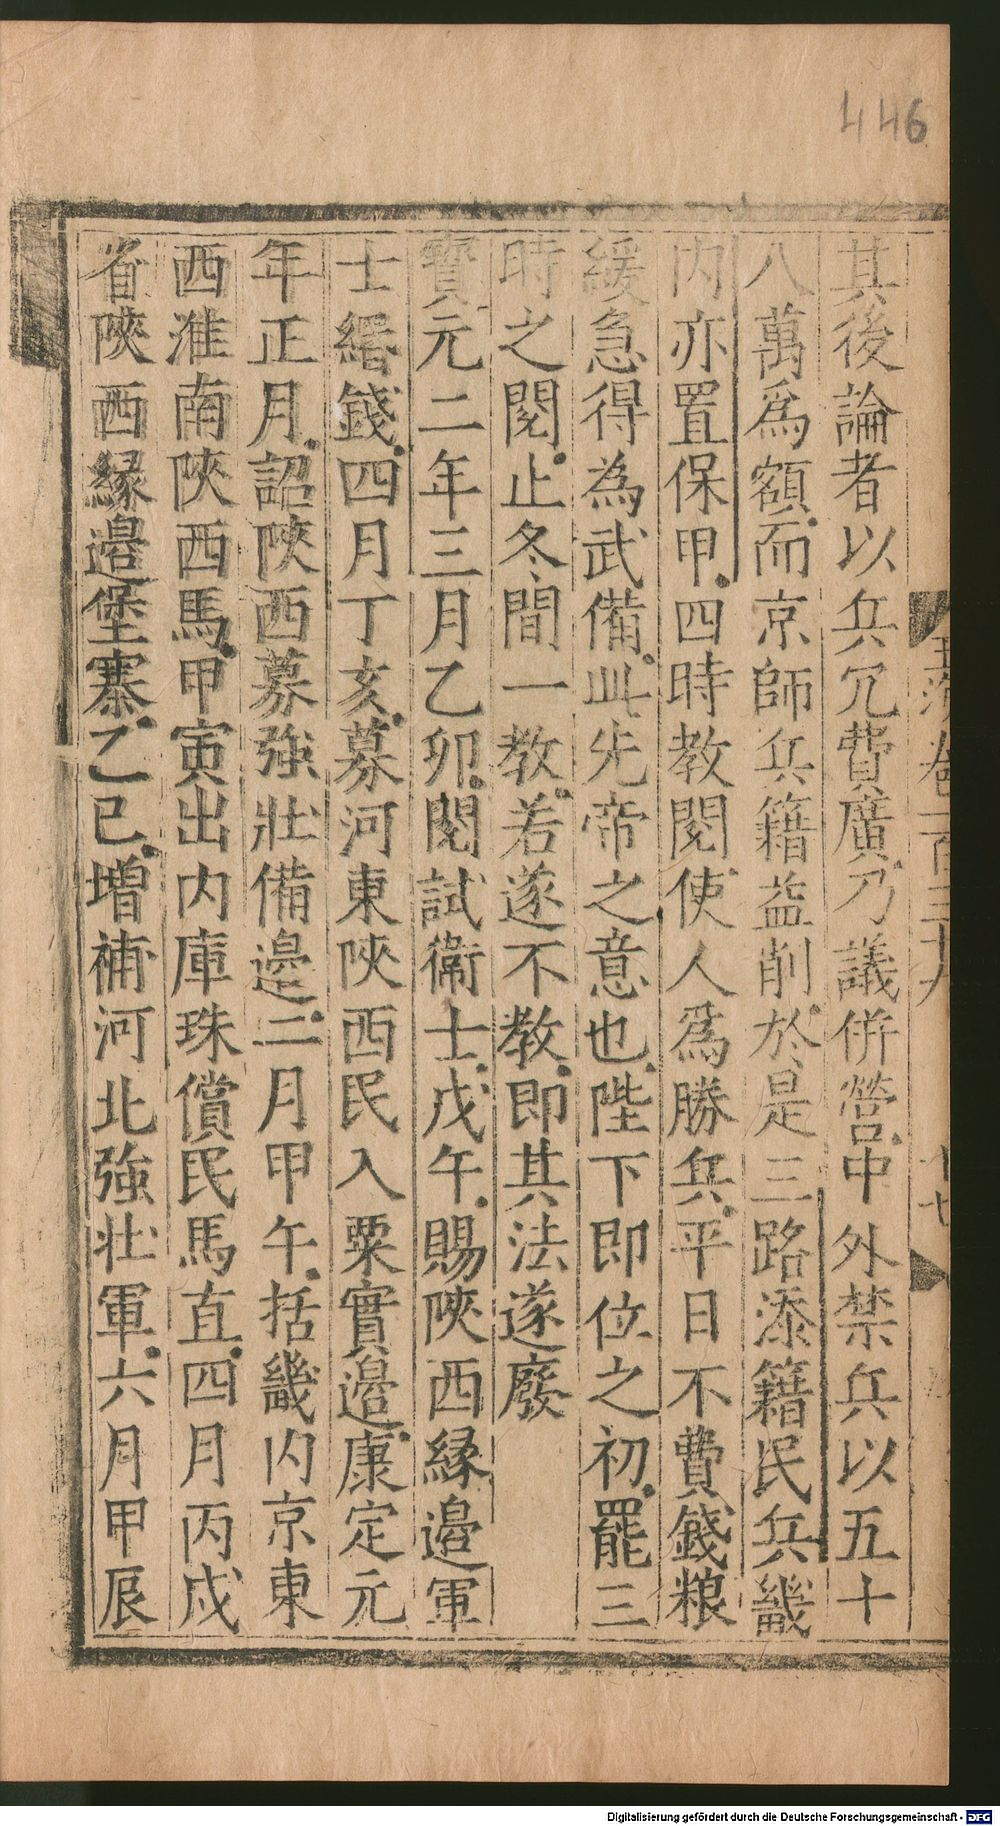 446
玉海卷一百三十九 十七
其後論者以兵冗費廣乃議併營中外禁兵以五十
八萬爲額而京師兵籍益削於是三路添籍民兵畿
内亦置保甲四時教閱使人爲勝兵平日不費錢粮
緩急得為武備此先帝之意也陛下即位之初罷三
時之閱止冬間一教若遂不教即其法遂廢
寳元二年三月乙卯閱試衛士戊午賜陜西縁邉軍
士緡錢四月丁亥募河東陜西民入粟實邉康定元
年正月詔陜西募強壯備邉二月甲午括畿内京東
西淮南陜西馬甲寅出内庫珠償民馬直四月丙戌
省陜西縁邉堡寨乙巳增補河北強壯軍六月甲辰
Digitalisierung gefördert durch die Deutsche Forschungsgemeinschaft - DFG